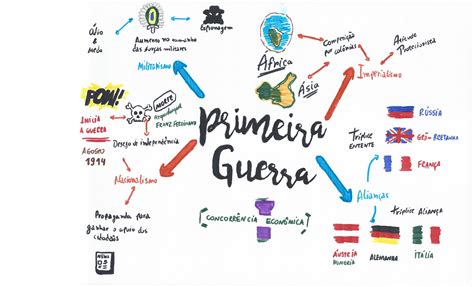 Ódio
e
medo
Espionagem
Aumento no tamanho
das forças militares
Militarismo
POW!
INICIA
A GUERRA
AGOSTO
1914
MORTE
Arquiduque
FRANZ FERDINAND
Desejo de independência
Nacionalismo
Propaganda para
ganhar o apoio dos
cidadãos
NEWS
Primeira
Guerra
CONCORRÊNCIA ECONÔMICA
África
Ásia
Competição
por colônias
Atitude
Protecionista
Imperialismo
RÚSSIA
TRÍPLICE
ENTENTE
GRÃ-BRETANHA
FRANÇA
Alianças
Tríplice Aliança
ÁUSTRIA
HUNGRIA
ALEMANHA
ITÁLIA